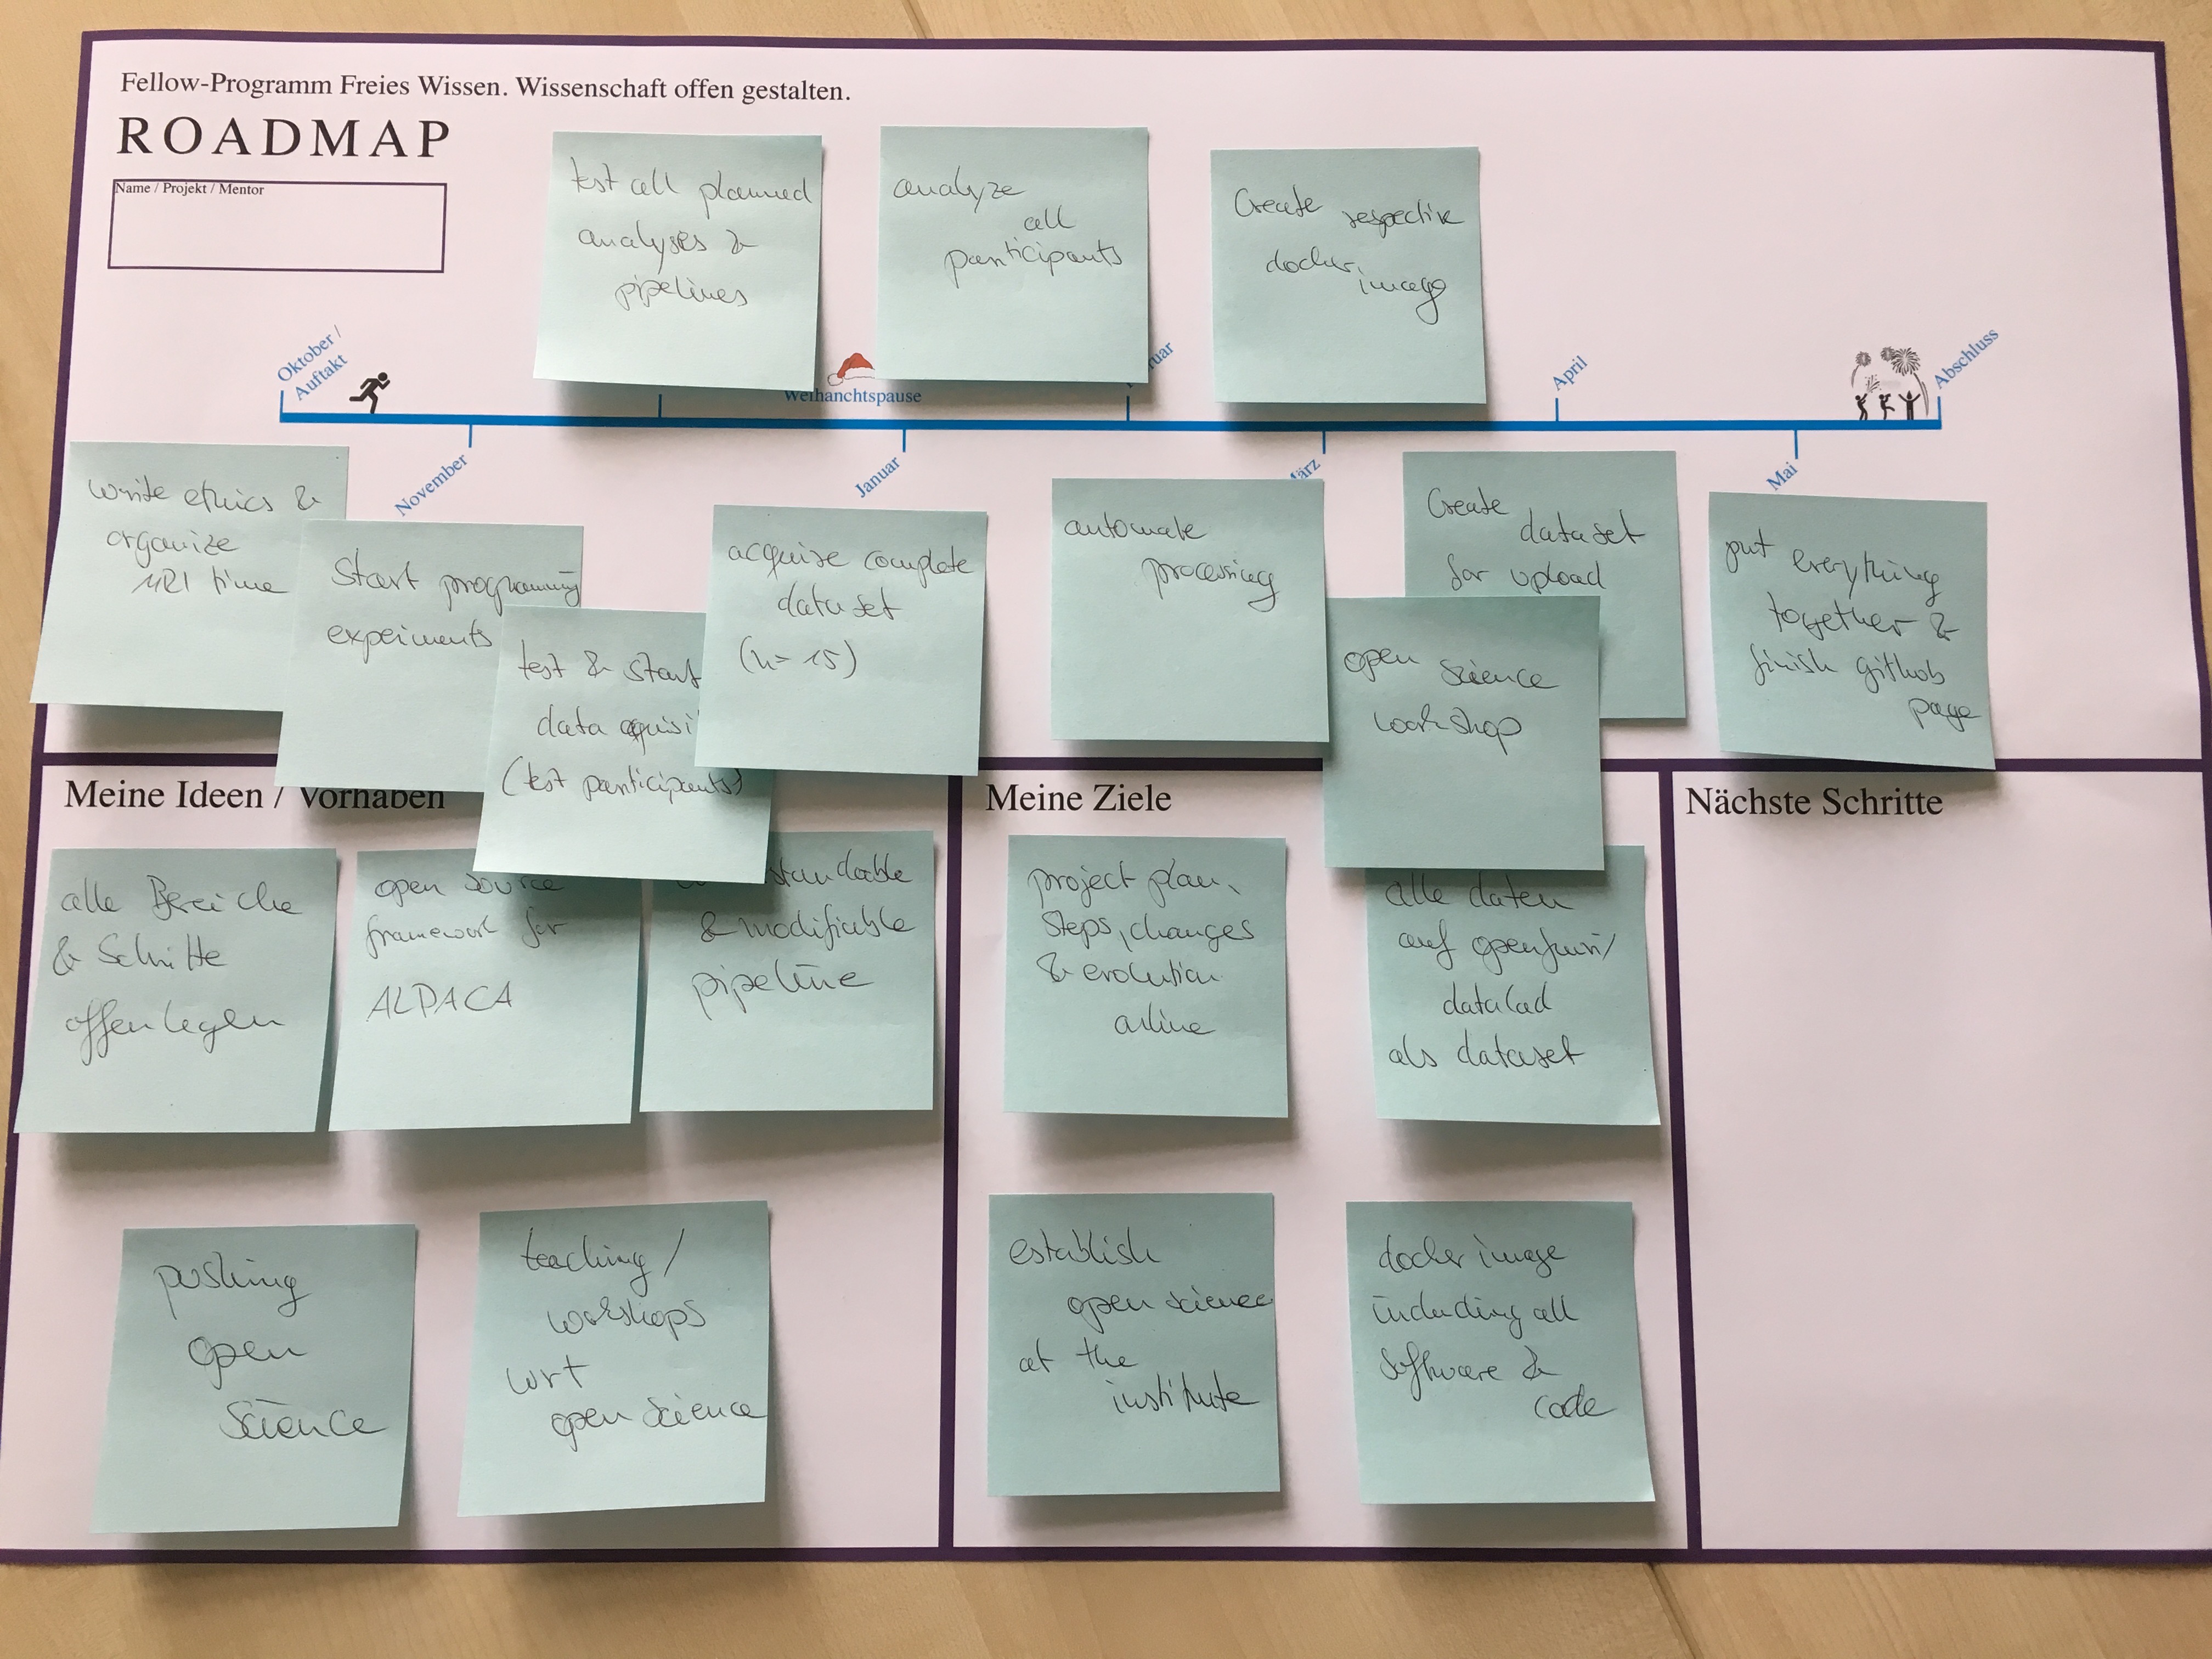 Fellow-Programm Freies Wissen. Wissenschaft offen gestalten.
ROADMAP
Name / Projekt / Mentor
test all planned
analyses &
pipelines
analyze
all
participants
Create respective
docker
image
Oktober /
Auftakt
Weihanchtspause
ruar
April
Abschluss
November
Januar
März
Mai
write ethics &
organize
MRI time
Start programming
experiments
test & start
data aquisi
(test participants)
acquire complete
dataset
(n=15)
automate
processing
Create
dataset
for upload
open science
workshop
put everything
together &
finish github
page
Meine Ideen / Vorhaben
alle Bereiche
& Schritte
offenlegen
open source
framework for
ALPACA
standable
& modifiable
pipeline
pushing
open
science
teaching /
workshops
wrt
open science
Meine Ziele
project plan,
steps, changes
& evolution
online
alle daten
auf openfmri/
datalad
als dataset
establish
open science
at the
institute
docker image
including all
software &
code
Nächste Schritte